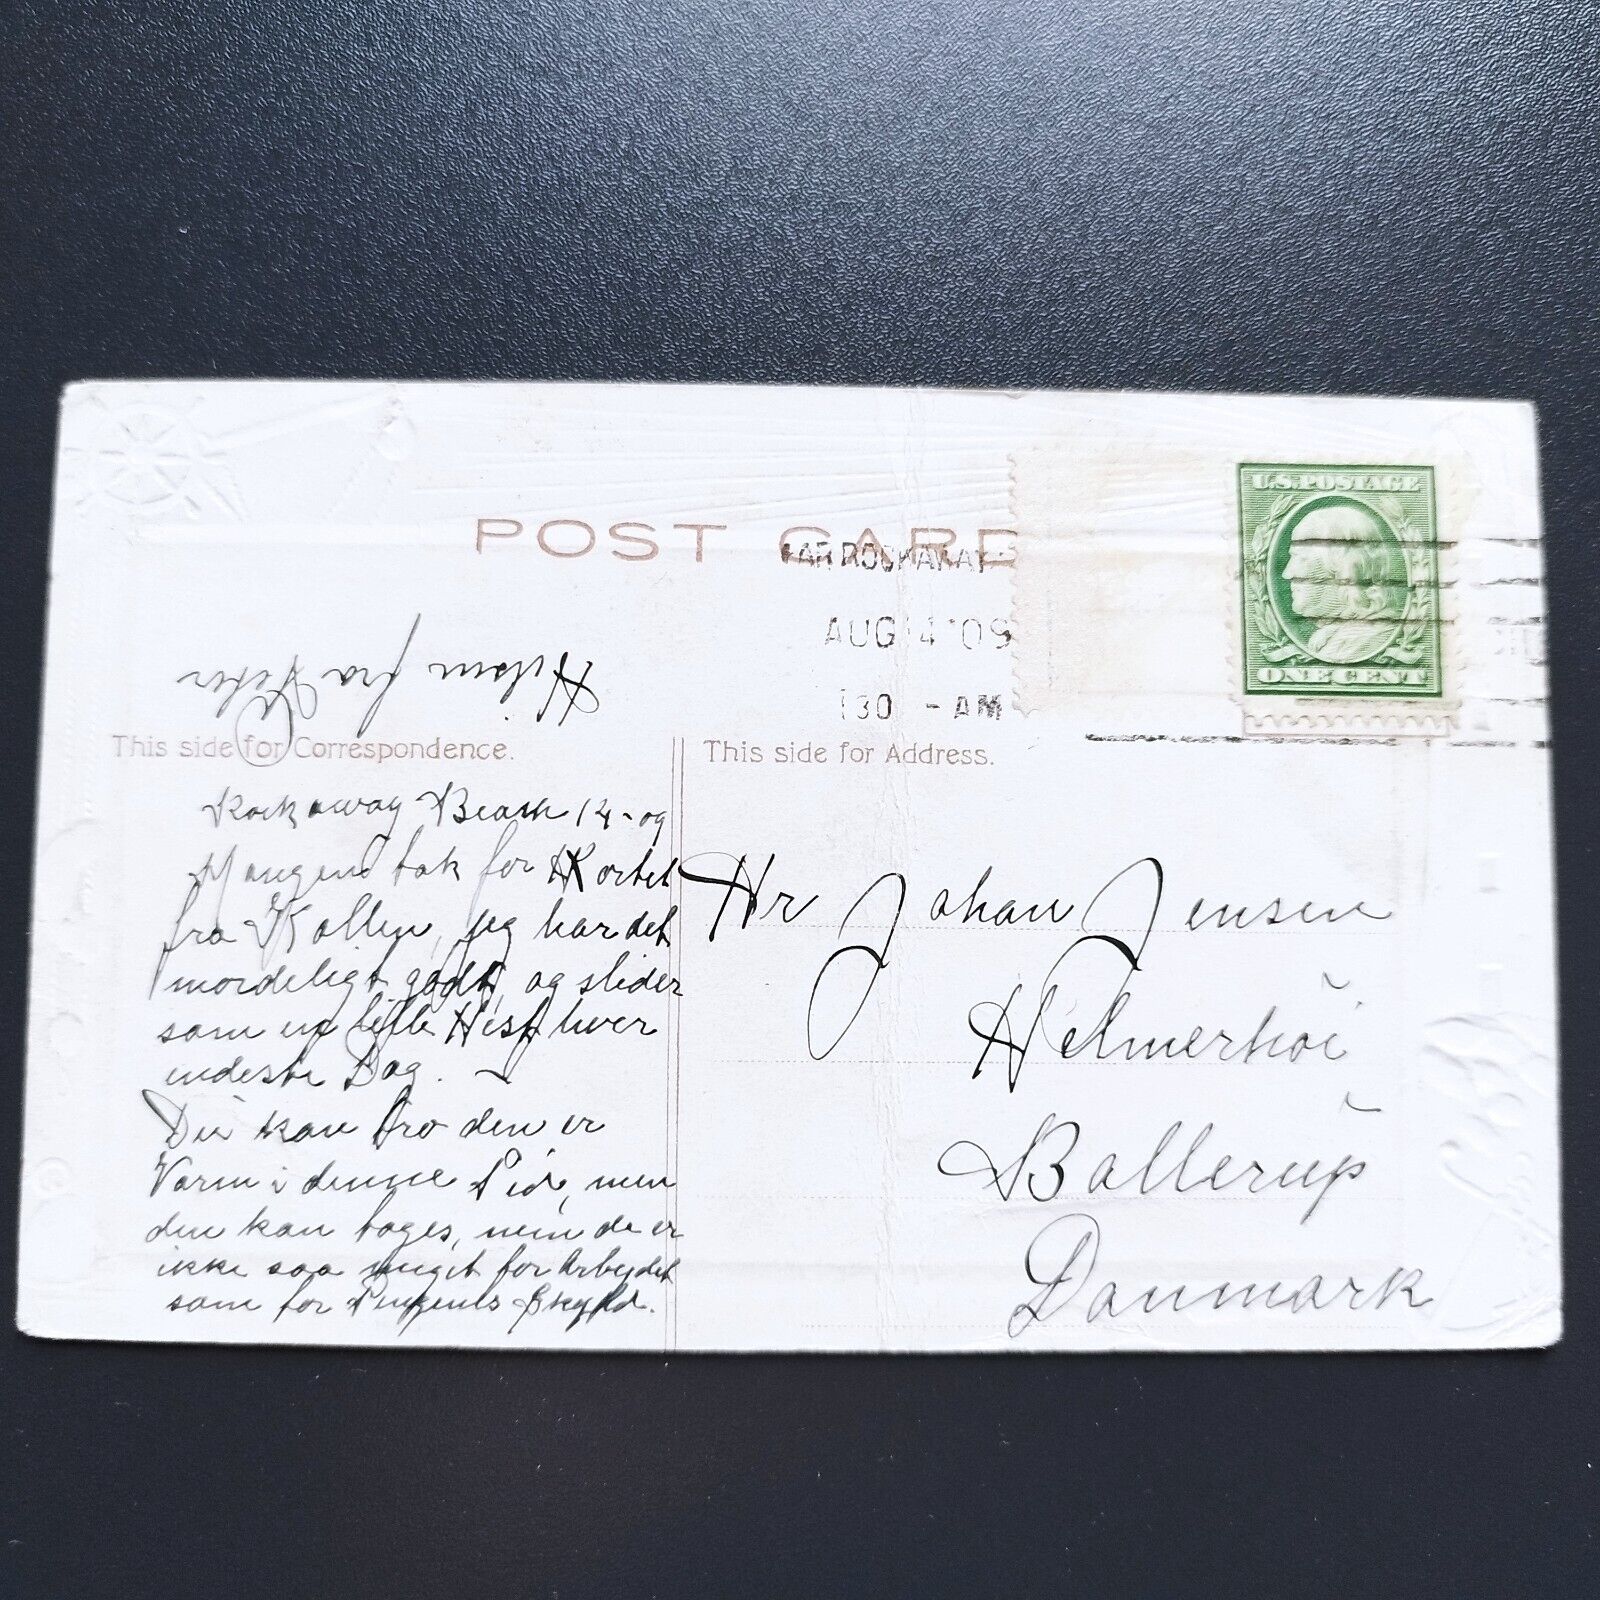 POST CARD
FAR ROCKAWAY
AUG 14 '09
130 - AM
U.S. POSTAGE
ONE CENT
Hilsen fra Peter
This side for Correspondence.
This side for Address.
Rockaway Beach 14-og
Mangen tak for Kortet
fra Kollen, jeg har det
mordeligt godt, og slider
som en lille Hest hver
endeste Dag.
Du kan tro den er
Varm i denne Tid, men
den kan tages, men de er
ikke saa meget for Arbejdet
som for Pengenes Skyld.
Hr Johan Jensen
Helmerhöi
Ballerup
Danmark